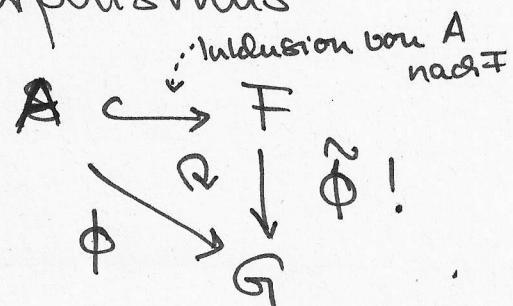 Inklusion von A
nach F
A F
ϕ̃ !
ϕ
G